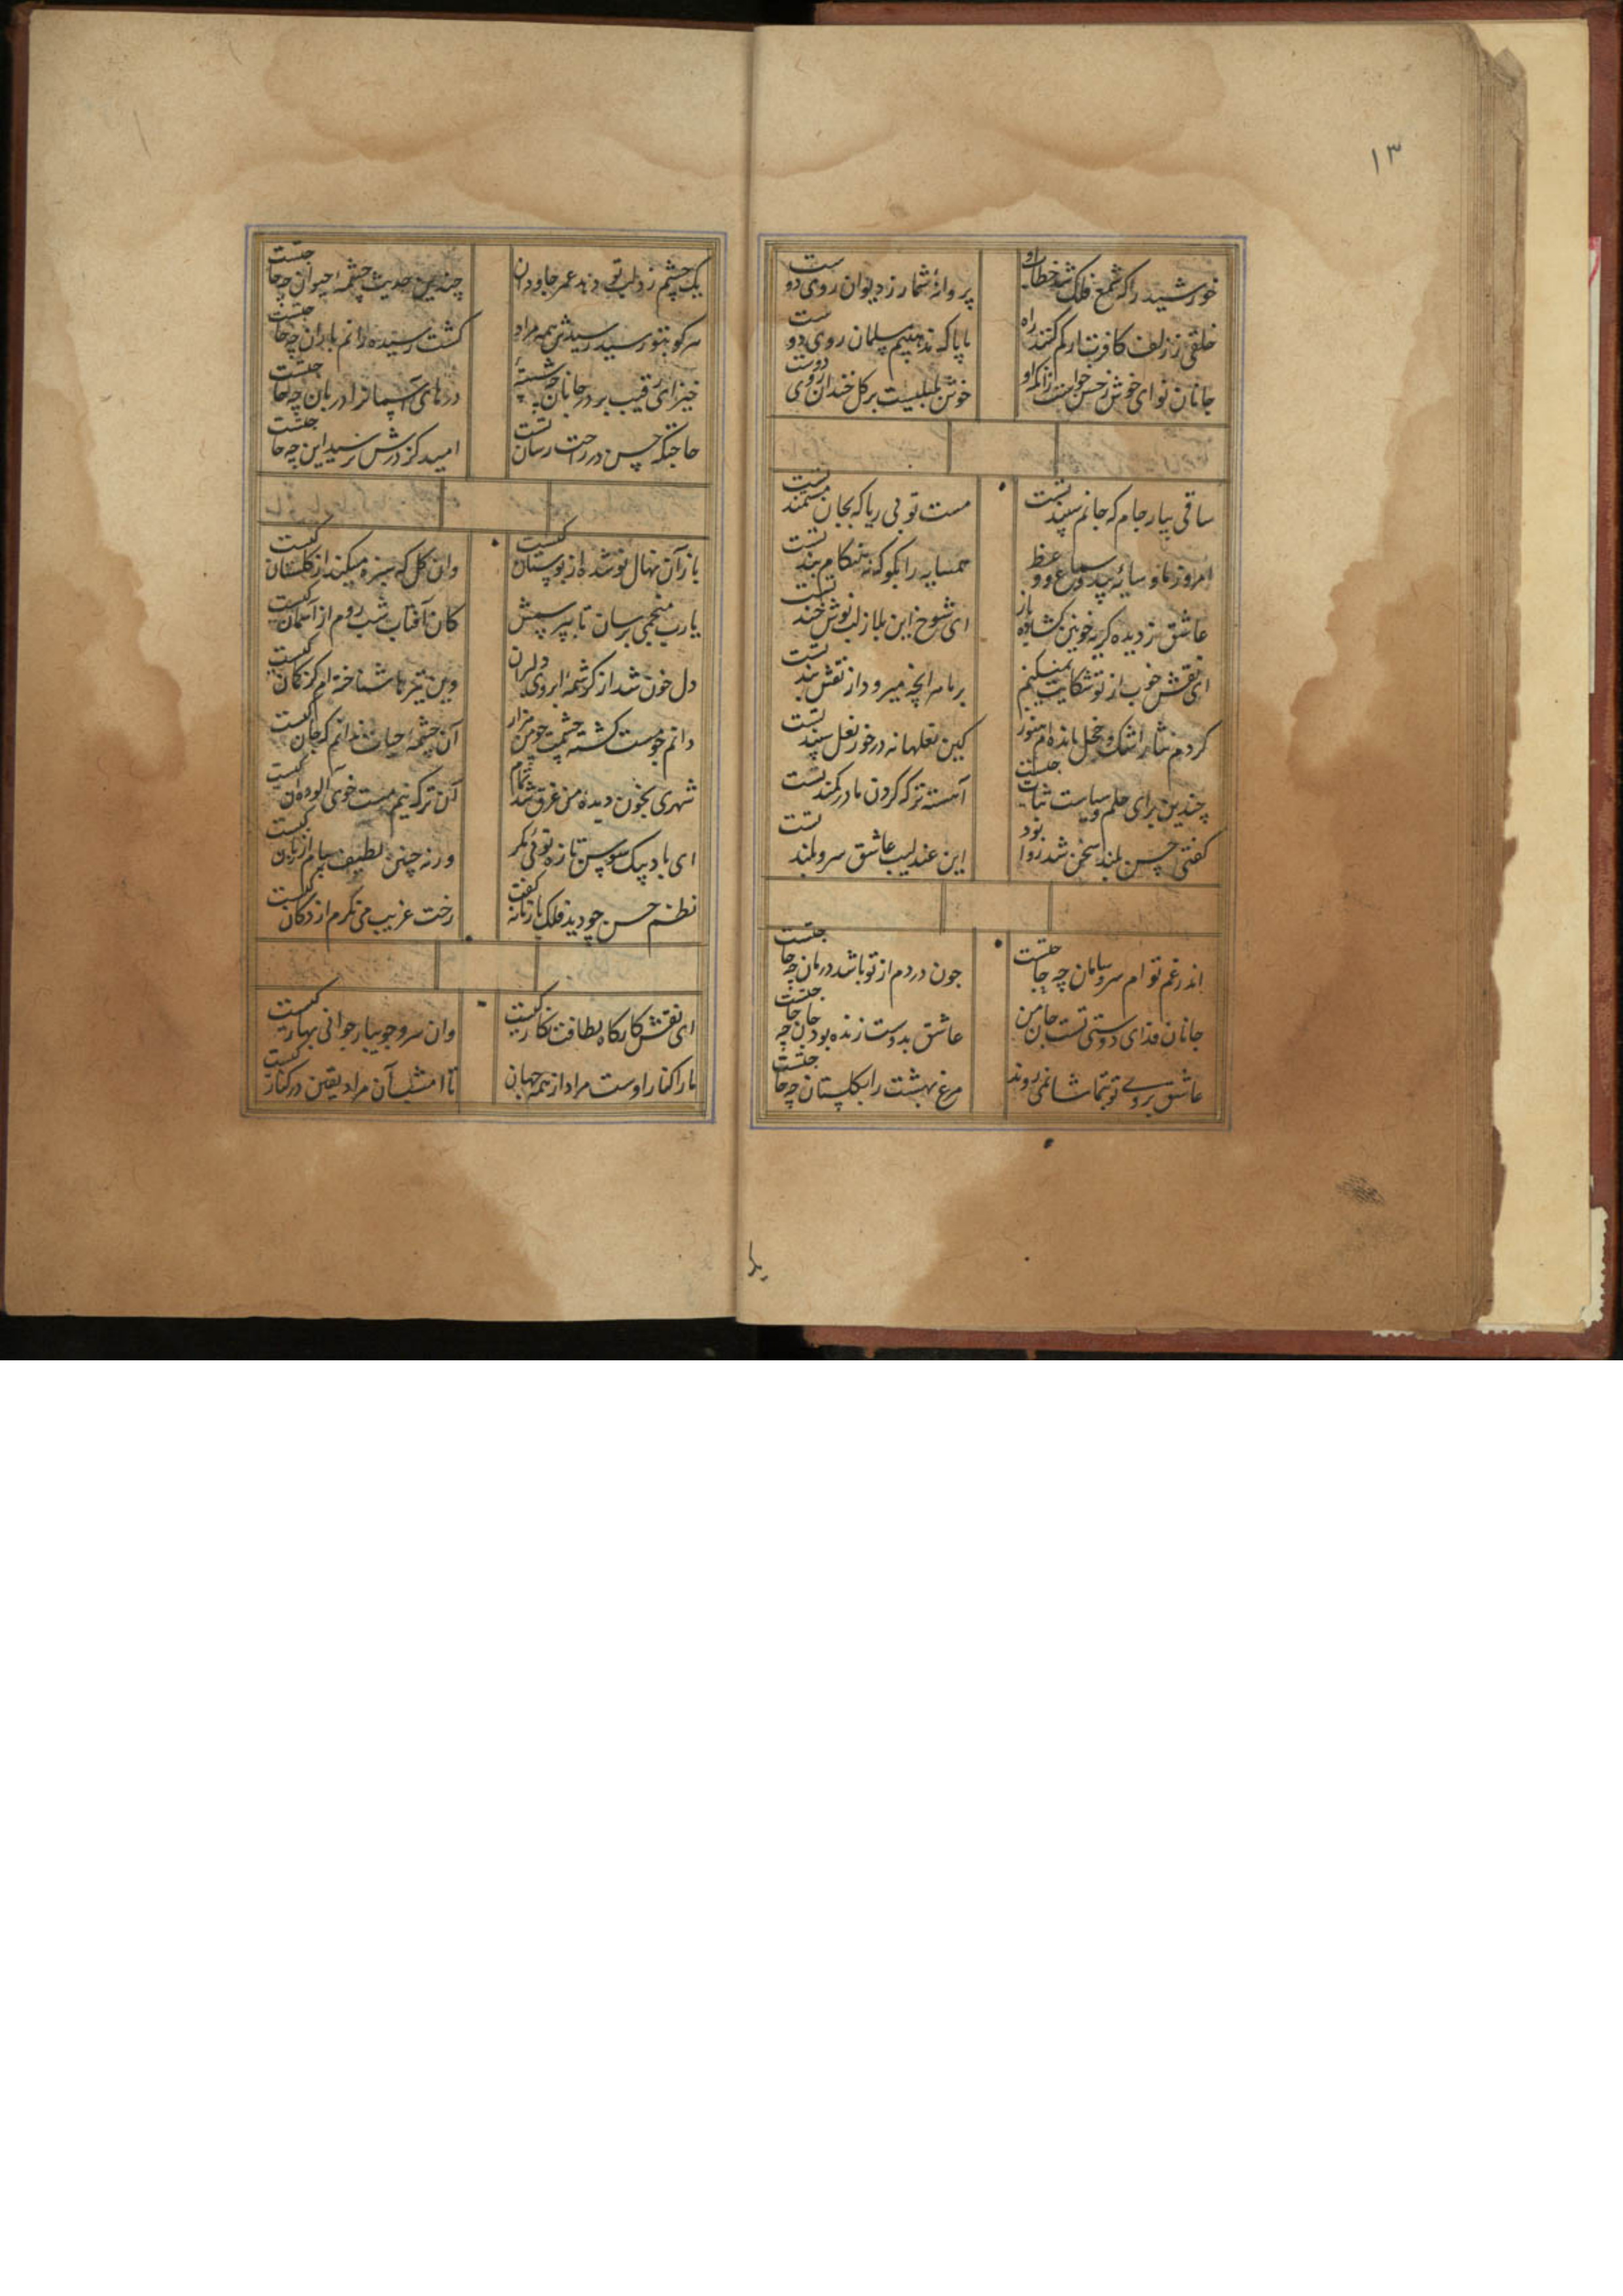 ۱۳
خورشید را که شمع فلک شد خطاب او پروانهٔ شمار ز دیوان روی دوست
خلقی ز زلف کافرت ار کم کنند راه ما پاک مذهبیم مسلمان روی دوست
جانان نوای خوش ز حسن خواست زانکه او خوش بلبلیست بر گل خندان روی دوست
ساقی بیار جام که جانم سپند تست مست تو بی ریا که بجان مستمند تست
امروز ما و سایهٔ بید و سماع و وعظ همسایه را بگو که نه هنگام بند تست
عاشق ز دیده گریهٔ خونین گشاده باز ای شوخ این بلا ز لب نوش خند تست
ای نقش خوب از تو شکایت نمیکنیم بر ما هرانچه میرود از نقش بند تست
کردم نثار اشک و خجل مانده ام هنوز کین نعلها نه درخور نعل سمند تست
چندین برای حلم و سیاست ثبات جست آهسته ترکه گردن ما در کمند تست
گفتی حسن بلند سخن شد روا بود این عندلیب عاشق سرو بلند تست
اندر غم توام سر و سامان چه جا جست چون دردم از تو باشد درمان چه جا جست
جانان فدای دوستی تست جان من عاشق بدوست زنده بود جان چه جا جست
عاشق بروی تو بتماشا نمی روند مرغ بهشت را بگلستان چه جا جست
یک
یک چشم زد لب تو دهد عمر جاودان چندین حدیث چشمهٔ حیوان چه جا جست
هرکو بتو رسید رسیدش همه مراد کشت رسیده دانم باران چه جا جست
خیز ای رقیب بر در جانان چه شستهٔ درهای آسمان را دربان چه جا جست
حاجتکه حسن در راحت رسان تست امید کز درش نرسید این چه جا جست
باز آن نهال نو شده از بوستان کیست وان گل که سبزه میکند از گلستان کیست
یارب منجمی برسان تا بپرسمش کان آفتاب شب روم از آسمان کیست
دل خون شد از کرشمهٔ ابروی دلبران وین تیر ناشناخته ام کز کمان کیست
دانم چو مست کشتهٔ چشمت چو من هزار آن چشمهٔ حیات ندانم که جان کیست
شهری بخون دیدهٔ من غرق شد تمام آن ترک نیم مست خوی آلوده ان کیست
ای باد پیک سوسن تازه توئی مگر ورنه چنین لطیف پیام از زبان کیست
نظم حسن چو دید فلک با زمانه گفت رخت غریب می نگرم از دکان کیست
ای نقش کارگاه لطافت نگار کیست وان سرو جویبار جوانی بهار کیست
ما را کنار اوست مراد از همه جهان تا امشب آن مراد یقین در کنار کیست